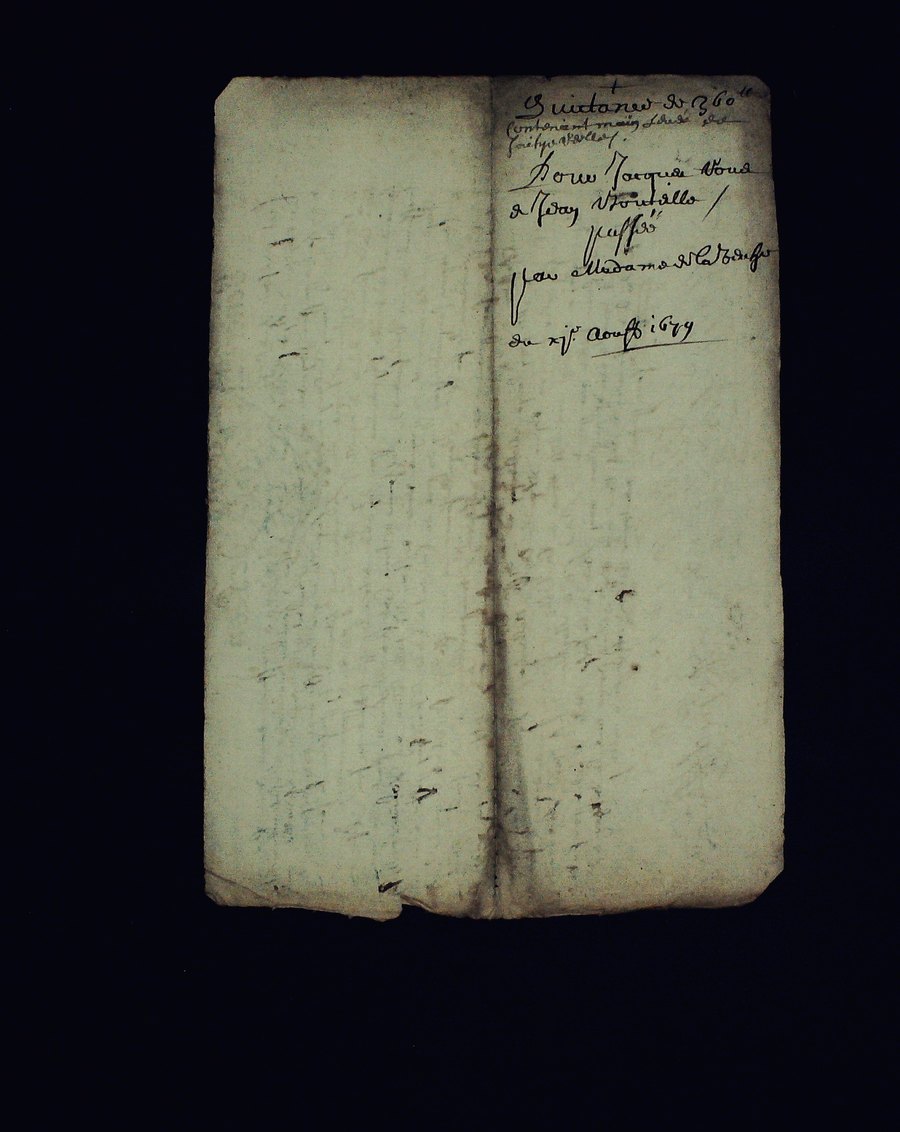 Quictance de 360ᵗᵗ
Contenant main levée de
Pour Jacques
et Jean
passée
par Madame de la
du xjᵉ Aoust 1679